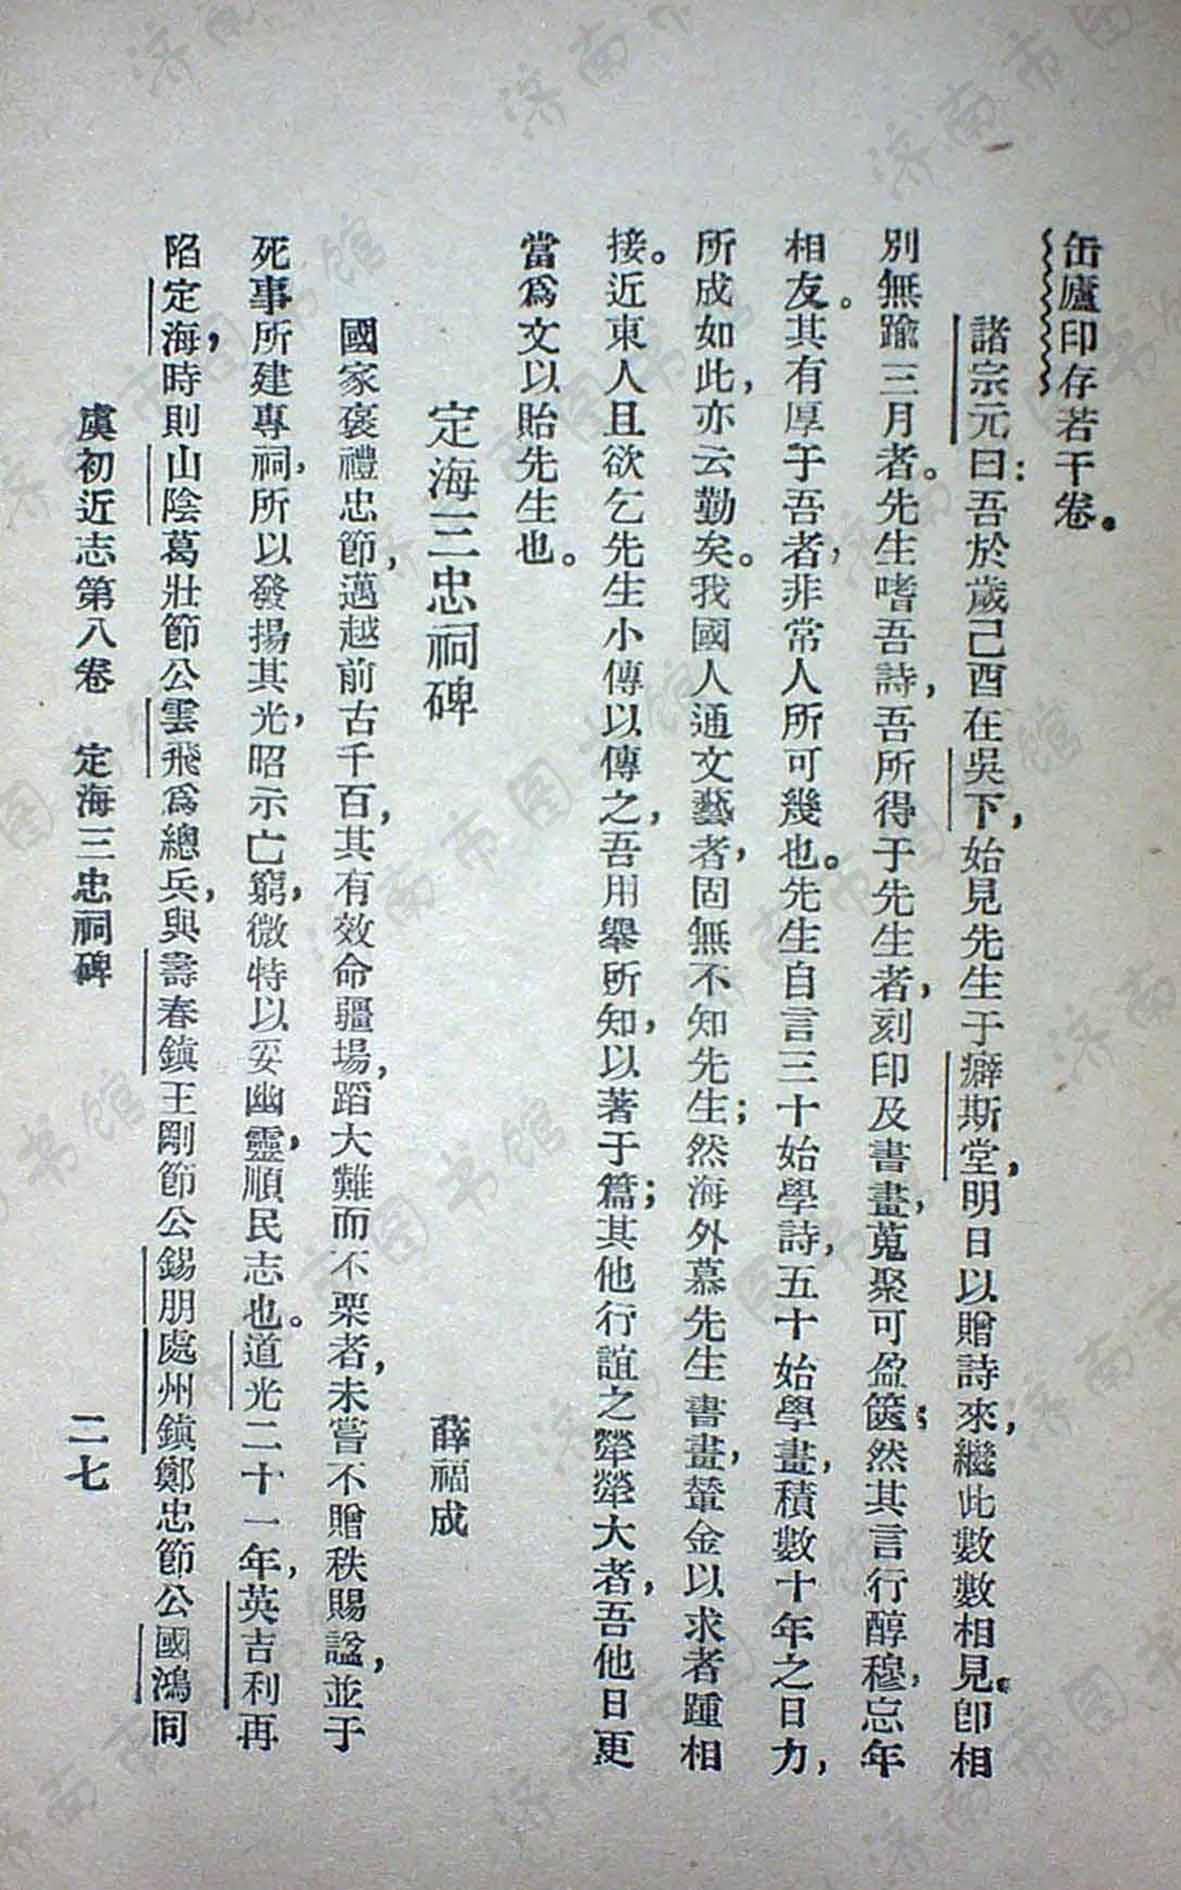 缶廬印存若干卷。
諸宗元曰：吾於歲己酉在吳下，始見先生于癖斯堂，明日以贈詩來，繼此數數相見。卽相
別無踰三月者。先生嗜吾詩，吾所得于先生者，刻印及書畫，蒐聚可盈篋；然其言行醇穆，忘年
相友。其有厚于吾者，非常人所可幾也。先生自言三十始學詩，五十始學畫，積數十年之日力，
所成如此，亦云勤矣。我國人通文藝者，固無不知先生；然海外慕先生書畫，輦金以求者踵相
接。近東人且欲乞先生小傳以傳之，吾用舉所知，以著于篇；其他行誼之犖犖大者，吾他日更
當爲文以貽先生也。
定海三忠祠碑　薛福成
國家褒禮忠節，邁越前古千百，其有效命疆場，蹈大難而不栗者，未嘗不贈秩賜諡，並于
死事所建專祠，所以發揚其光，昭示亡窮，微特以妥幽靈，順民志也。道光二十一年，英吉利再
陷定海，時則山陰葛壯節公雲飛爲總兵，與壽春鎭王剛節公錫朋處州鎭鄭忠節公國鴻同
虞初近志第八卷　定海三忠祠碑　二七
济南市图书馆